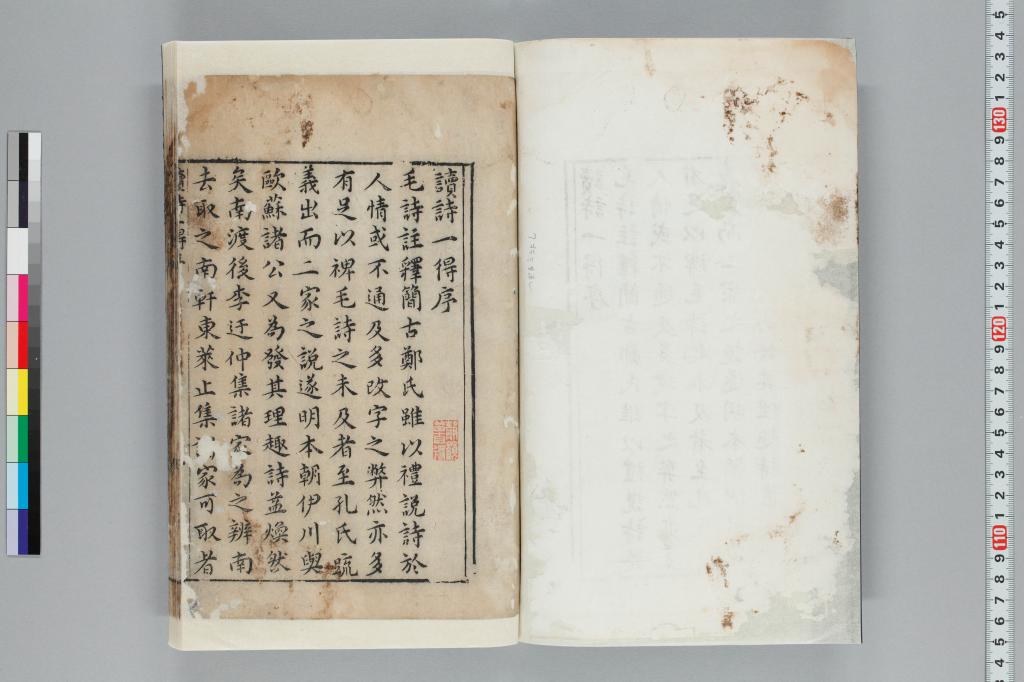 讀詩一得序
毛詩註釋簡古鄭氏雖以禮説詩於
人情或不通及多改字之弊然亦多
有足以裨毛詩之未及者至孔氏䟽
義出而二家之説遂明本朝伊川與
歐蘇諸公又為發其理趣詩葢煥然
矣南渡後李迃仲集諸家為之辨南
去取之南軒東萊止集 家可取者